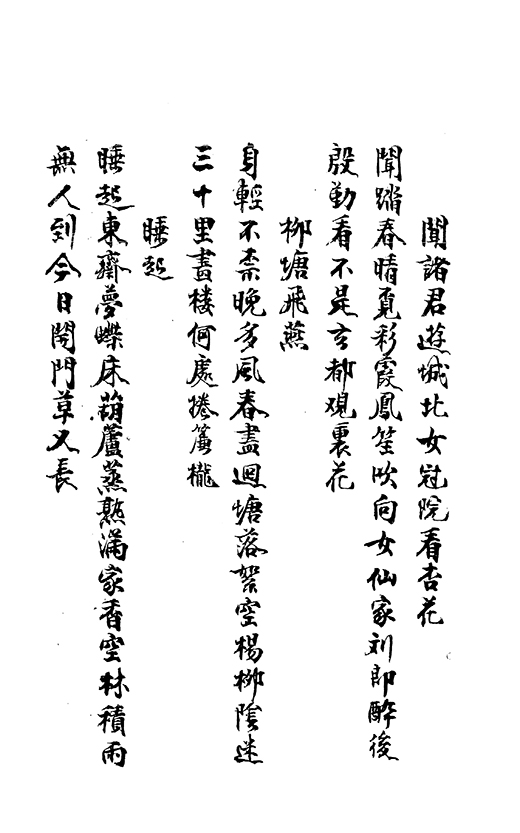 聞諸君遊城北女冠院看杏花
聞踏春晴覓彩霞鳳笙吹向女仙家刘郎醉後
殷勤看不是玄都观裏花
柳塘飛燕
身輕不柰晚多風春盡迴塘落絮空楊柳陰迷
三十里畫楼何處捲簾櫳
睡起
睡起東齋夢蝶床葫蘆蒸熟滿家香空林積雨
無人到今日開門草又長